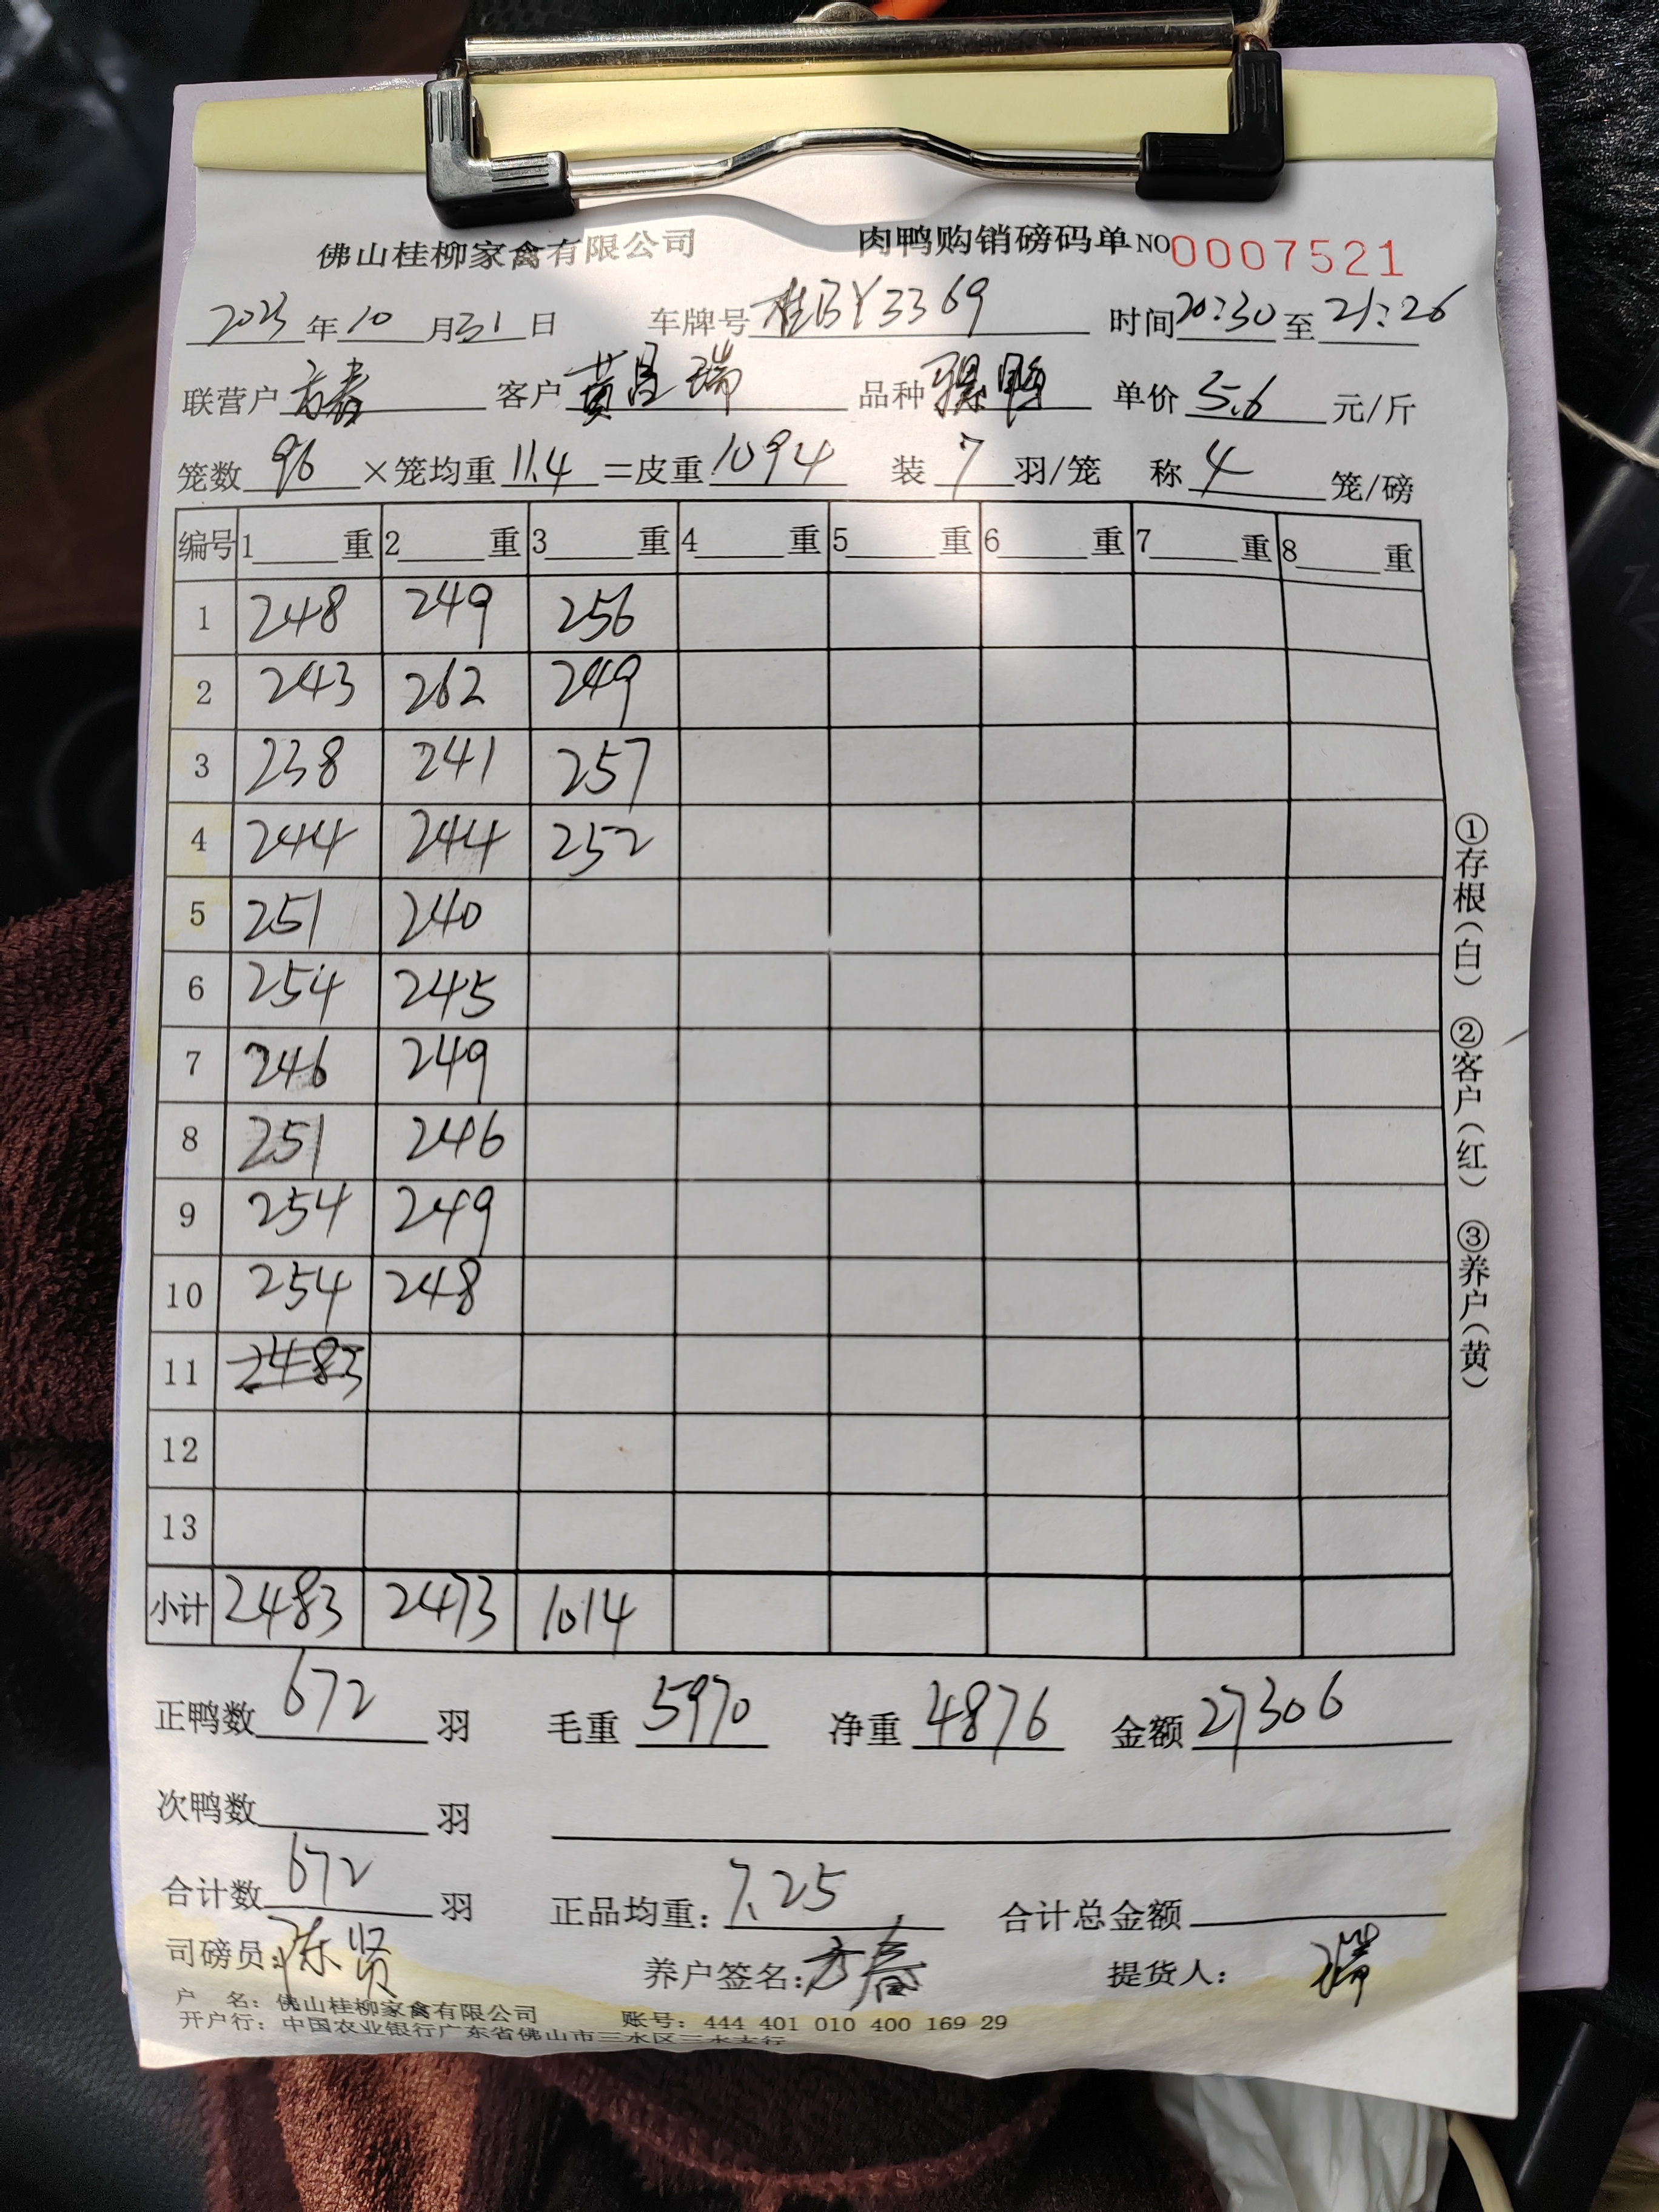 佛山桂柳家禽有限公司 肉鸭购销磅码单 NO 0007521
2023年10月31日 车牌号 桂BY3369 时间 20:30 至 21:26
联营户 方春 客户 黄昌瑞 品种 骡鸭 单价 5.6 元/斤
笼数 96 ×笼均重 11.4 =皮重 1094 装 7 羽/笼 称 4 笼/磅
编号 1 重 2 重 3 重 4 重 5 重 6 重 7 重 8 重
1 248 249 256
2 243 262 249
3 238 241 257
4 244 244 252
5 251 240
6 254 245
7 246 249
8 251 246
9 254 249
10 254 248
11 2483
12
13
小计 2483 2473 1014
正鸭数 672 羽 毛重 5970 净重 4876 金额 27306
次鸭数 羽
合计数 672 羽 正品均重: 7.25 合计总金额
司磅员: 陈贤 养户签名: 方春 提货人: 瑞
户 名: 佛山桂柳家禽有限公司 账号: 444 401 010 400 169 29
开户行: 中国农业银行广东省佛山市三水区三水支行
①存根(白) ②客户(红) ③养户(黄)